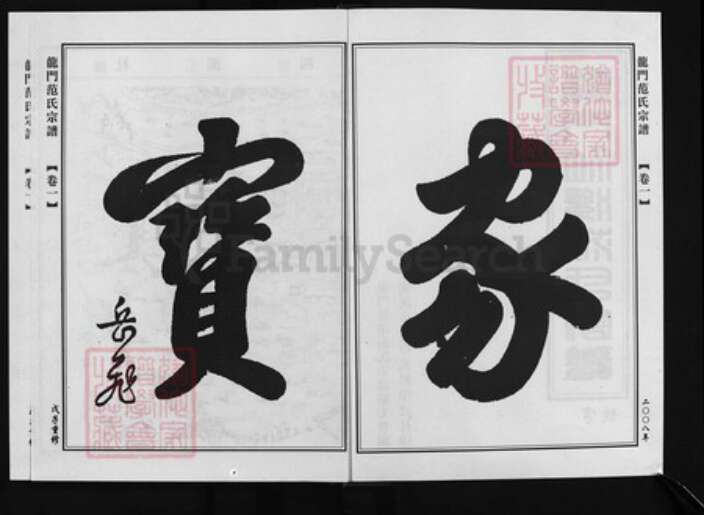 龍門范氏宗譜
【卷一】
二〇〇八年
家
寶
岳飛
龍門范氏宗譜
【卷一】
戊子重修
FamilySearch